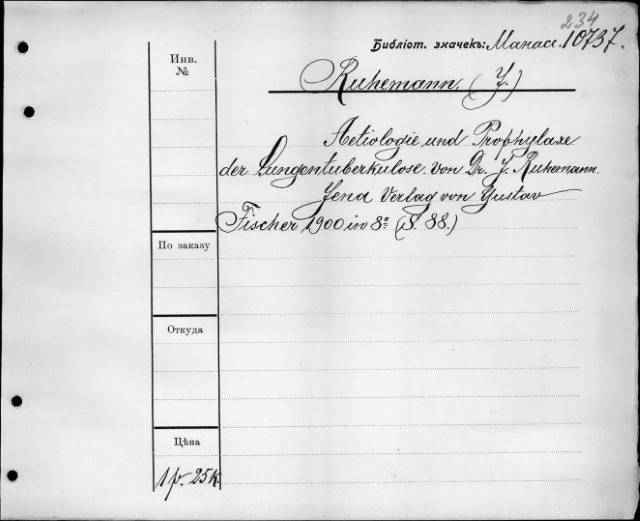 234
Библіот. значекъ: Манасс. 10737.
Инв.
№
Ruhemann. (J.)
Aetiologie und Prophylaxe
der Lungentuberkulose. von Dr. J. Ruhemann.
Jena Verlag von Gustav
Fischer 1900 in 8º (S. 88.)
По заказу
Откуда
Цѣна
1 р. 25 к.